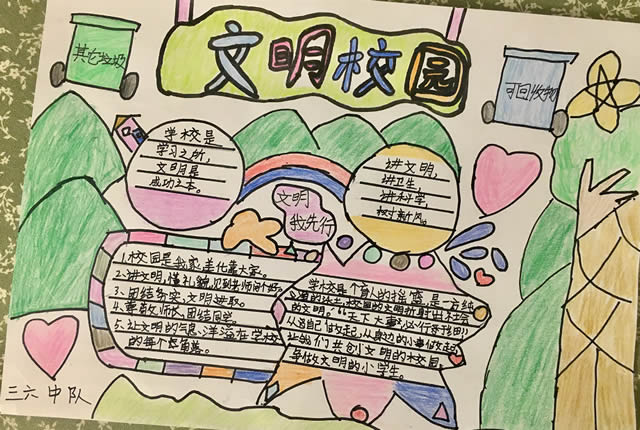 文明校园
其它垃圾
可回收物
学校是
学习之所,
文明是
成功之本。
讲文明,
讲卫生,
讲科学,
树新风。
文明
我先行
1.校园是我家,美化靠大家。
2.讲文明,懂礼貌,见到老师问个好。
3.团结务实,文明进取。
4.尊敬师长,团结同学
5.让文明的气息,洋溢在学校
的每个角落。
学校是个育人的摇篮,是一方纯
校园的文明折射出社会
的文明。“天下大事,必作于细”
从自己做起,从身边的小事做起
让我们共创文明的校园,
争做文明的小学生。
三六中队